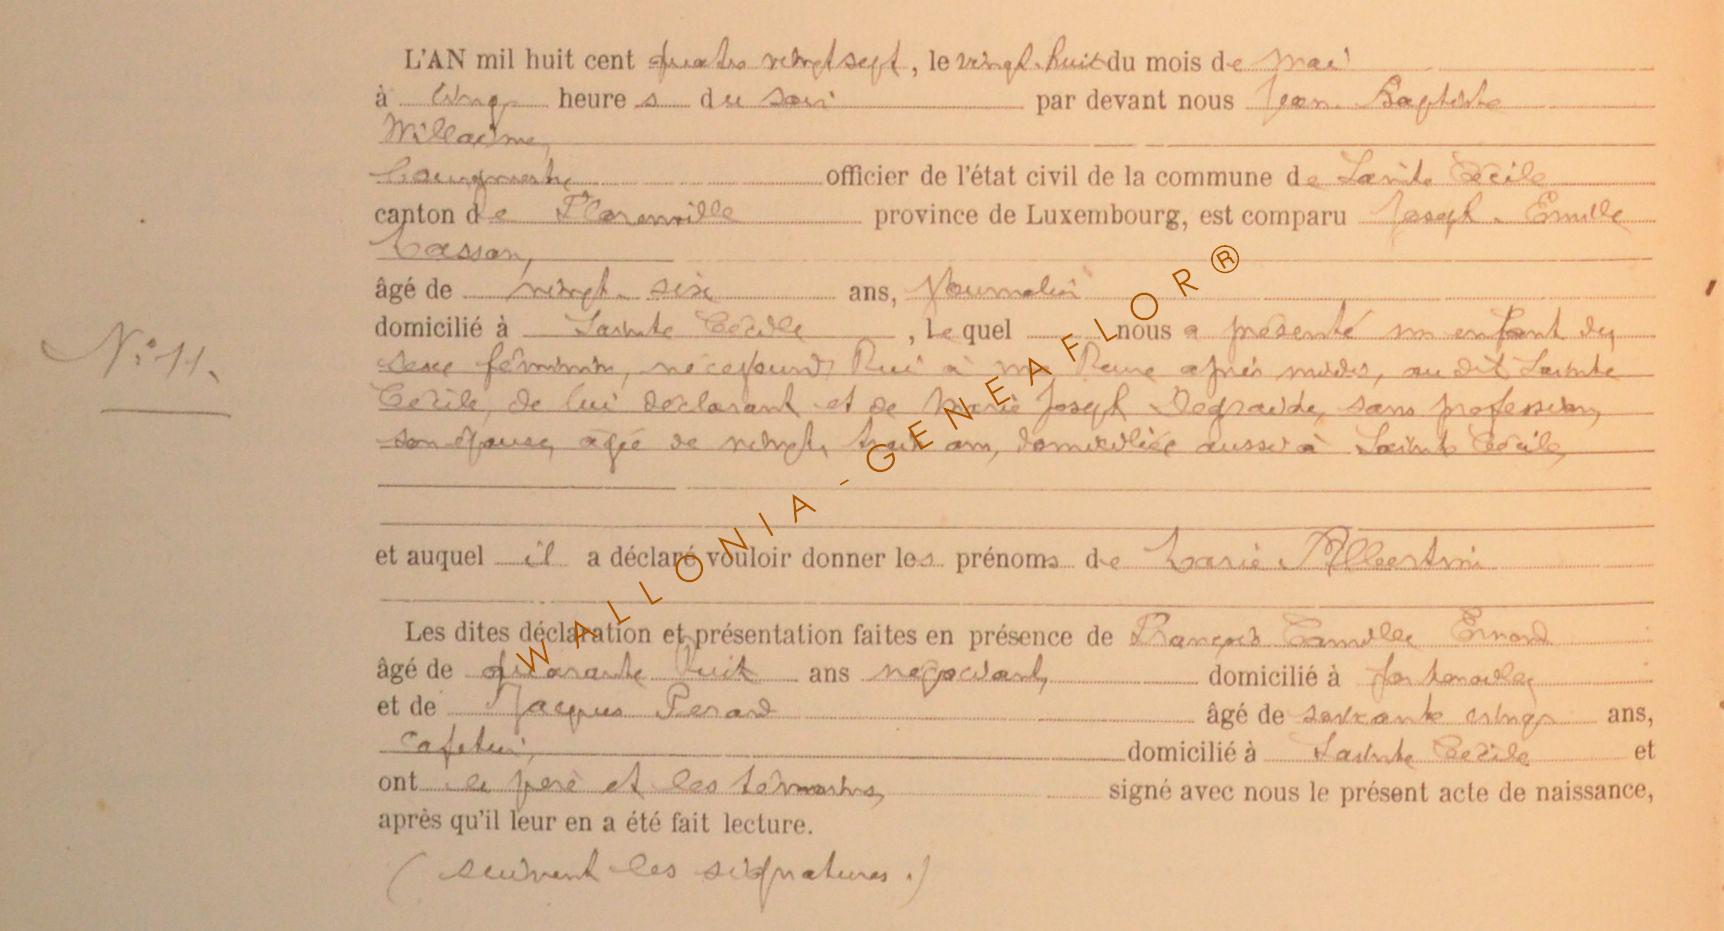 L'AN mil huit cent quatre vingt sept, le vingt-huit du mois de mai
à cinq heures du soir par devant nous Jean-Baptiste
Willaime,
bourgmestre officier de l'état civil de la commune de Sainte Cécile
canton de Florenville province de Luxembourg, est comparu Joseph-Emile
Lasson,
âgé de vingt-six ans, journalier
domicilié à Sainte Cécile, lequel nous a présenté un enfant du
sexe féminin, né cejourd'hui à une heure après midi, au dit Sainte
Cécile, de lui déclarant et de Marie Joseph sans profession,
son épouse, âgée de vingt ans, domiciliée aussi à Sainte Cécile,
et auquel il a déclaré vouloir donner les prénoms de Marie
Les dites déclaration et présentation faites en présence de François Camille
âgé de quarante huit ans négociant, domicilié à Fontenoille
et de Jacques Perard âgé de soixante cinq ans,
cafetier, domicilié à Sainte Cécile et
ont le père et les témoins, signé avec nous le présent acte de naissance,
après qu'il leur en a été fait lecture.
(suivent les signatures.)
N° 11.
WALLONIA-GENEAFLOR®